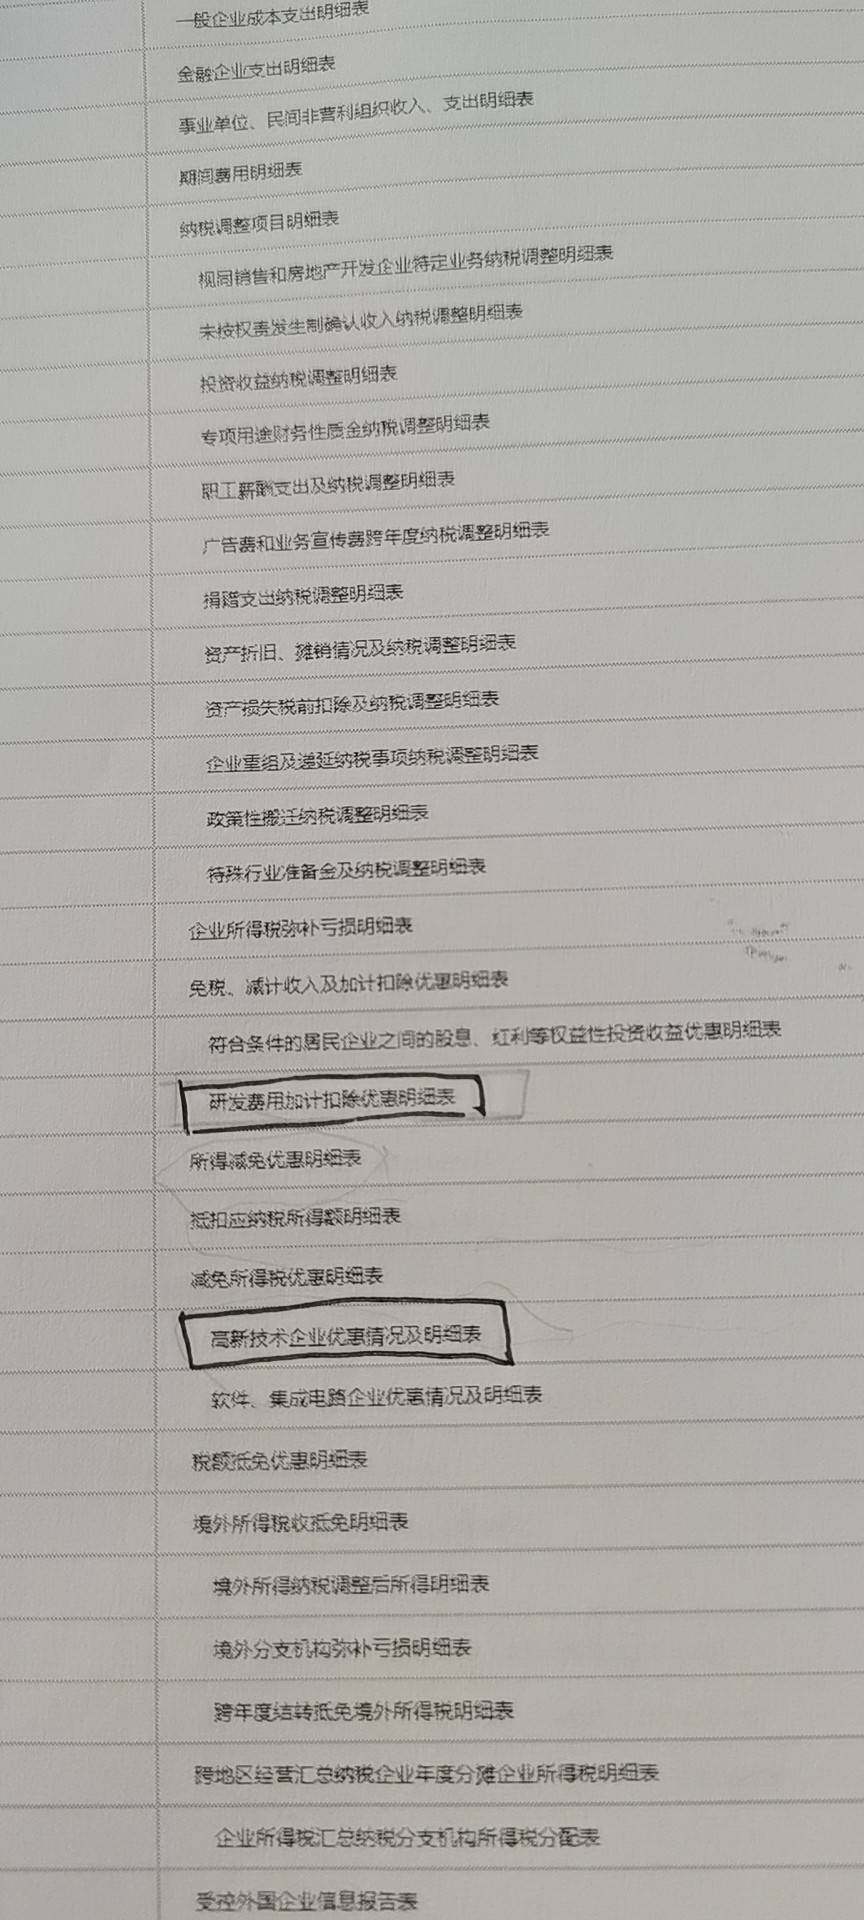 一般企业成本支出明细表
金融企业支出明细表
事业单位、民间非营利组织收入、支出明细表
期间费用明细表
纳税调整项目明细表
视同销售和房地产开发企业特定业务纳税调整明细表
未按权责发生制确认收入纳税调整明细表
投资收益纳税调整明细表
专项用途财务性质金纳税调整明细表
职工薪酬支出及纳税调整明细表
广告费和业务宣传费跨年度纳税调整明细表
捐赠支出纳税调整明细表
资产折旧、摊销情况及纳税调整明细表
资产损失税前扣除及纳税调整明细表
企业重组及递延纳税事项纳税调整明细表
政策性搬迁纳税调整明细表
特殊行业准备金及纳税调整明细表
企业所得税弥补亏损明细表
免税、减计收入及加计扣除优惠明细表
符合条件的居民企业之间的股息、红利等权益性投资收益优惠明细表
研发费用加计扣除优惠明细表
所得减免优惠明细表
抵扣应纳税所得额明细表
减免所得税优惠明细表
高新技术企业优惠情况及明细表
软件、集成电路企业优惠情况及明细表
税额抵免优惠明细表
境外所得税收抵免明细表
境外所得纳税调整后所得明细表
境外分支机构弥补亏损明细表
跨年度结转抵免境外所得税明细表
跨地区经营汇总纳税企业年度分摊企业所得税明细表
企业所得税汇总纳税分支机构所得税分配表
受控外国企业信息报告表